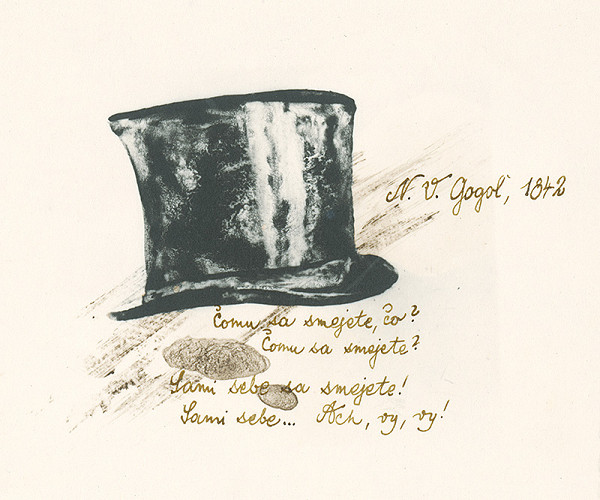 N. V. Gogoľ, 1842
Čomu sa smejete, čo?
Čomu sa smejete?
Sami sebe sa smejete!
Sami sebe... Ach, vy, vy!